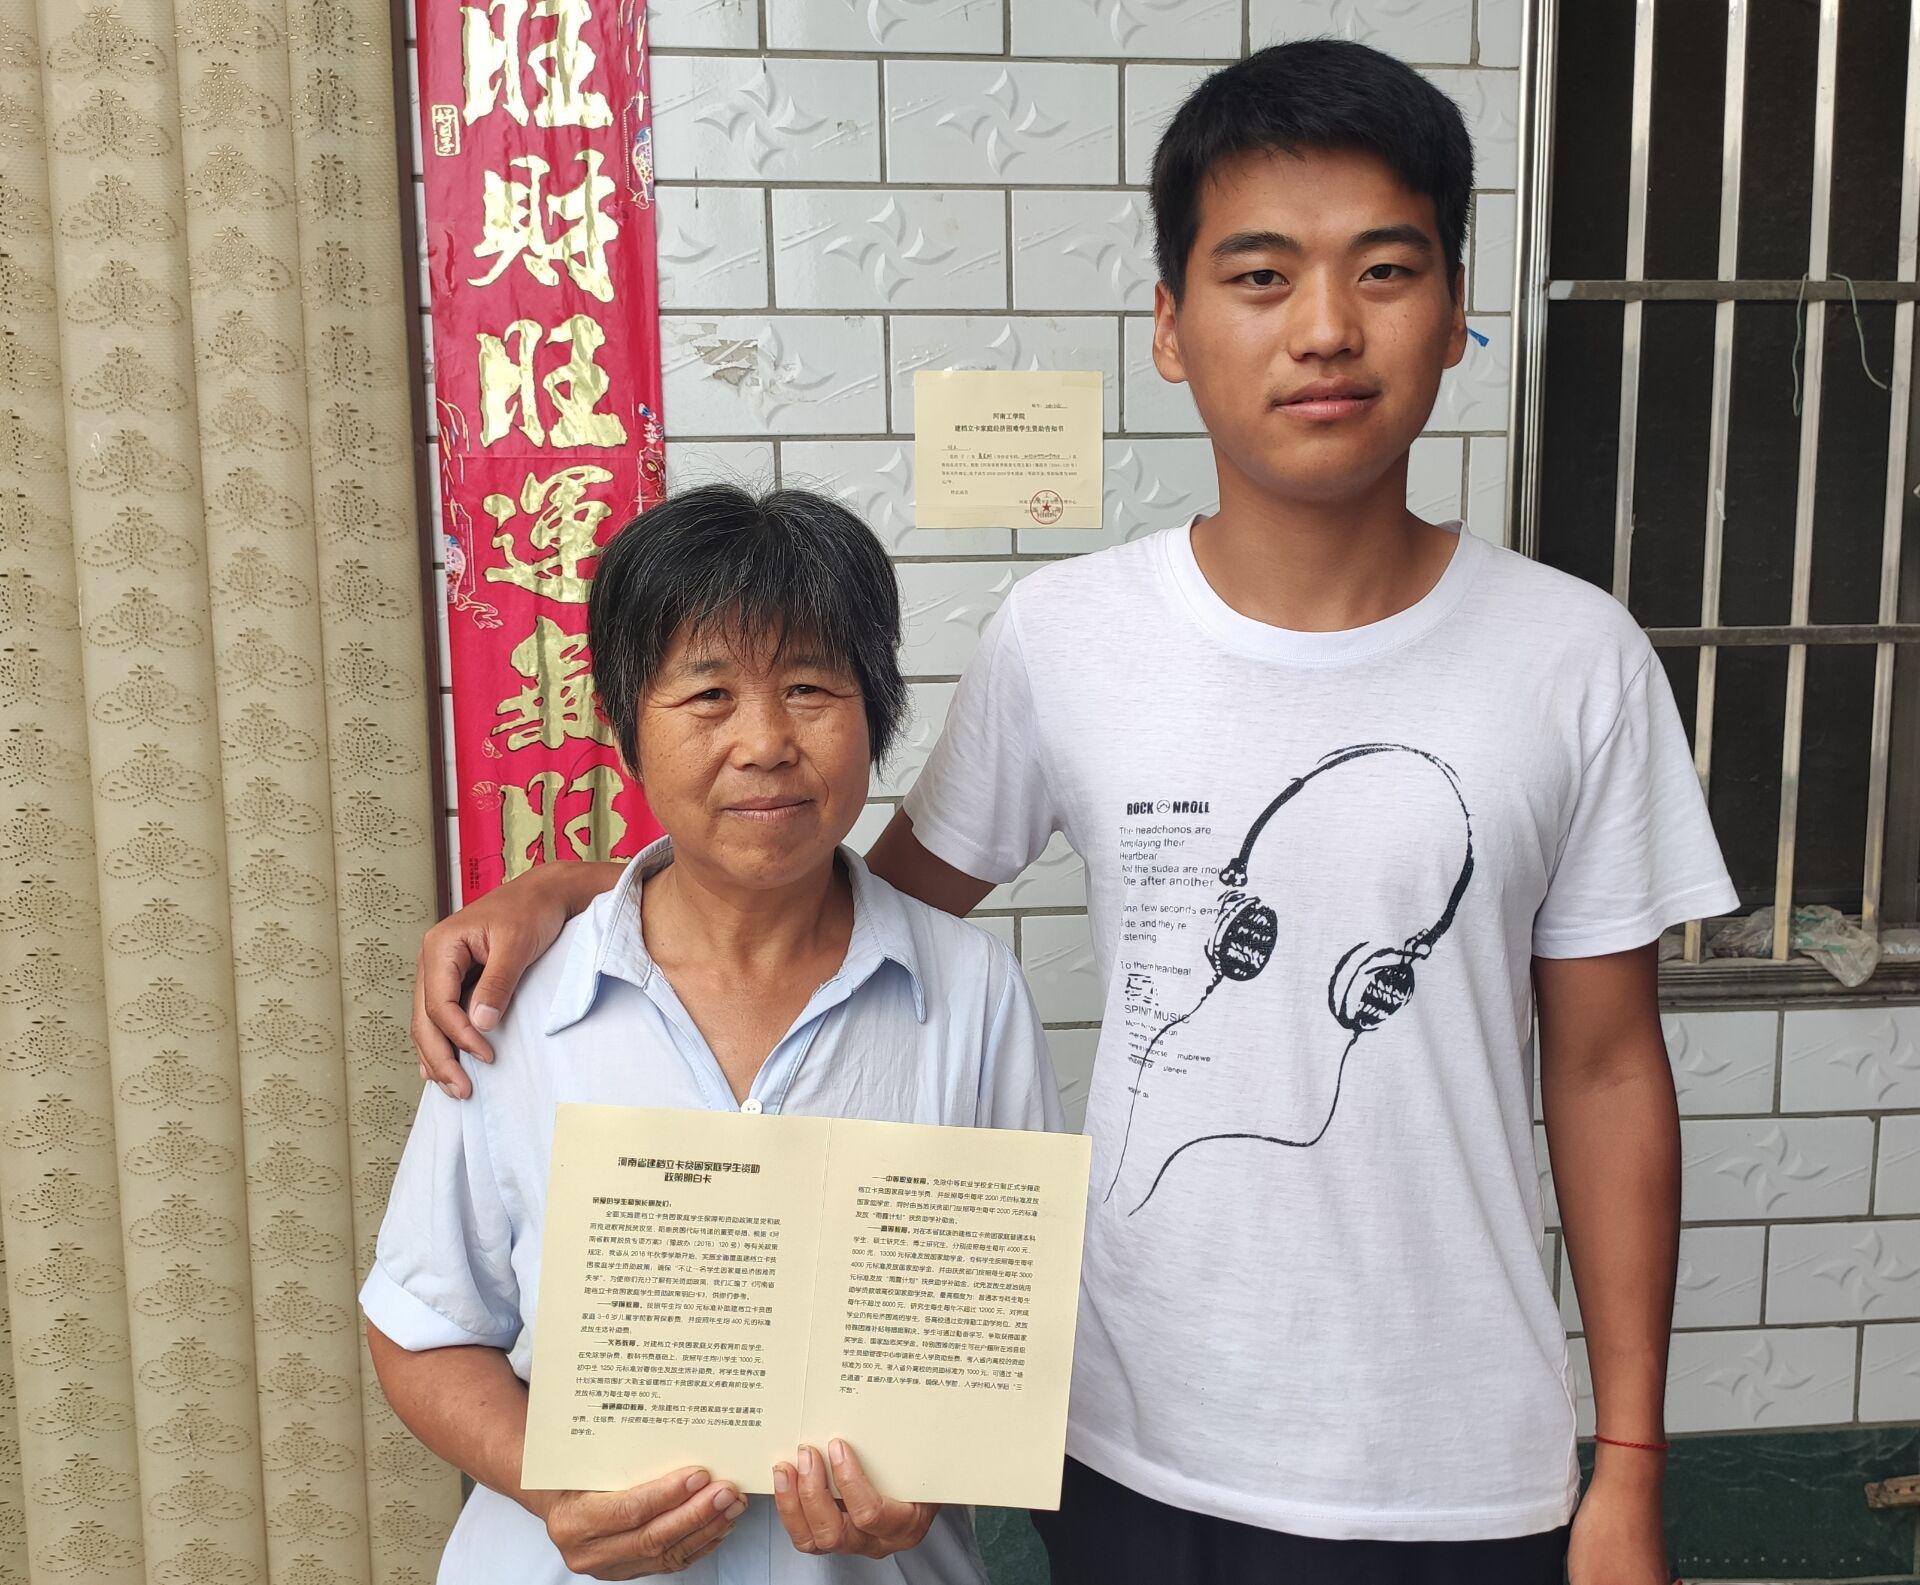 旺
財
旺
運
氣
旺
好日子
河南工学院
建档立卡家庭经济困难学生资助告知书
特此函告
ROCK NROLL
The headchonos are
Amplaying their
Heartbear
And the sudea are mou
One after another
ona few seconds ean
side and they re
istening
To there heanbeat
SPINIT MUSIC
河南省建档立卡贫困家庭学生资助
政策明白卡
亲爱的学生和家长朋友们：
全面实施建档立卡贫困家庭学生保障和资助政策是党和政
府推进教育脱贫攻坚、阻断贫困代际传递的重要举措。根据《河
南省教育脱贫专项方案》（豫政办〔2016〕120号）等有关政策
规定，我省从2016年秋季学期开始，实施全面覆盖建档立卡贫
困家庭学生资助政策，确保“不让一名学生因家庭经济困难而
失学”。为使你们充分了解有关资助政策，我们汇编了《河南省
建档立卡贫困家庭学生资助政策明白卡》，供你们参考。
——学前教育。按照年生均600元标准补助建档立卡贫困
家庭3-6岁儿童学前教育保教费，并按照年生均400元的标准
发放生活补助费。
——义务教育。对建档立卡贫困家庭义务教育阶段学生，
在免除学杂费、教科书费基础上，按照年生均小学生1000元、
初中生1250元标准对寄宿生发放生活补助费。将学生营养改善
计划实施范围扩大到全省建档立卡贫困家庭义务教育阶段学生，
发放标准为每生每年800元。
——普通高中教育。免除建档立卡贫困家庭学生普通高中
学费、住宿费，并按照每生每年不低于2000元的标准发放国家
助学金。
——中等职业教育。免除中等职业学校全日制正式学籍建
档立卡贫困家庭学生学费，并按照每生每年2000元的标准发放
国家助学金，同时由当地扶贫部门按照每生每年2000元的标准
发放“雨露计划”扶贫助学补助金。
——高等教育。对在本省就读的建档立卡贫困家庭普通本科
学生、硕士研究生、博士研究生，分别按照每生每年4000元、
6000元、13000元标准发放国家助学金。专科学生按照每生每年
4000元标准发放国家助学金，并由扶贫部门按照每生每年3000
元标准发放“雨露计划”扶贫助学补助金。优先发放生源地信用
助学贷款或高校国家助学贷款，最高额度为：普通本专科生每生
每年不超过8000元、研究生每生每年不超过12000元。对完成
学业仍有经济困难的学生，各高校通过安排勤工助学岗位、发放
特殊困难补贴等措施解决。学生可通过勤奋学习，争取获得国家
奖学金、国家励志奖学金。特别困难的新生可在户籍所在地县级
学生资助管理中心申请新生入学资助路费，考入省内高校的资助
标准为500元，考入省外高校的资助标准为1000元；可通过“绿
色通道”直接办理入学手续，确保入学前、入学时和入学后“三
不愁”。